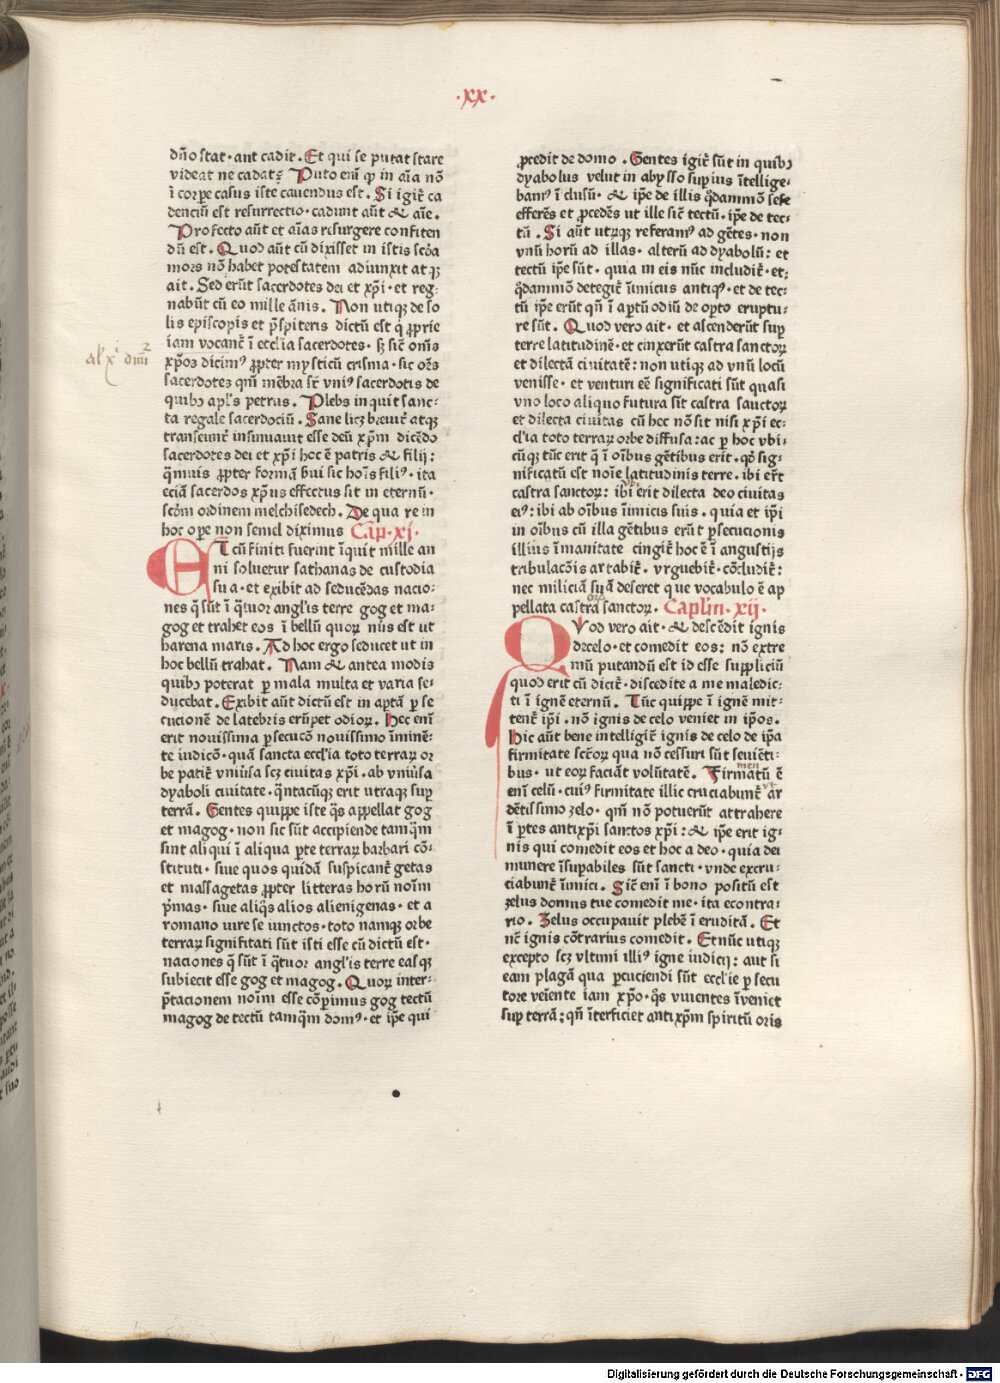 ·xx·
dño stat·aut cadit·Et qui se putat stare
videat ne cadat? Puto em̄ ꝙ in aīa nō
ī corpe casus iste cauendus est. Si igit̄ ca
denciū est resurrectio·cadunt aūt & aīe.
Profecto aūt et aīas resurgere confiten
dū est. Quod aūt cū dixisset in istis scḋa
mors nō habet potestatem adiunxit atqȝ
ait. Sed erūt sacerdotes dei et xp̄i·et reg-
nabūt cū eo mille ānis. Non utiqȝ de so
lis episcopis et p̄spiteris dictū est q̇ ꝓprie
iam vocant̄ ī ecclīa sacerdotes·sȝ sic̄ om̄s
xp̄os dicimꝰ ꝓpter mysticū crisma·sic om̄s
sacerdotes qm̄ mēbra st̄ vniꝰ sacerdotis de
quibꝰ apl̄s petrus. Plebs inquit sanc-
ta regale sacerdociū. Sane licȝ breuit̄ atqȝ
transeunt̄ insinuauit esse deū xp̄m dicēdo
sacerdotes dei et xp̄i hoc ē patris & filij:
q̄muis ꝓpter formā ẜui sic hoīs filiꝰ·ita
eciā sacerdos xp̄us effectus sit in eternū·
scḋm ordinem melchisedech. De qua re in
hoc oꝑe non semel diximus Cap·xj·
ET cū finiti fuerint īquit mille an
ni soluetur sathanas de custodia
sua·et exibit ad seducēdas nacio-
nes q̄ sūt ī q̄tuor angl̄is terre gog et ma-
gog et trahet eos ī bellū quorꝝ nūs est ut
harena maris. Ad hoc ergo seducet ut in
hoc bellū trahat. Nam & antea modis
quibꝰ poterat ꝑ mala multa et varia se-
ducebat. Exibit aūt dictū est in aptā ꝑse
cucionē de latebris erūpet odiorꝝ. Hec enī
erit nouissima ꝑsecucō nouissimo īminē-
te iudicō·quā sancta ecclīa toto terrarꝝ or
be patit̄ vniūsa scȝ ciuitas xp̄i·ab vniūsa
dyaboli ciuitate·q̄ntacūqȝ erit utraqȝ suꝑ
terrā. Gentes quippe iste q̄s appellat gog
et magog·non sic sūt accipiende tamq̄m
sint aliqui ī aliqua ꝑte terrarꝝ barbari cō-
stituti·siue quos quidā suspicant̄ getas
et massagetas ꝓpter litteras horū noīm
p̄mas·siue aliq̄s alios alienigenas·et a
romano iure seiunctos·toto namqȝ orbe
terrarꝝ significati sūt isti esse cū dictū est·
naciones q̄ sūt ī q̄tuor angl̄is terre easqȝ
subiecit esse gog et magog. Quorꝝ inter-
p̄tacionem noīm esse cōperimus gog tectū
magog de tectū tamq̄m domꝰ·et ip̄e qui
ꝓcedit de domo. Gentes igit̄ sūt in quibꝰ
dyabolus velut in abysso supius ītellige-
bamꝰ ī clusū·& ip̄e de illis q̄dammō sese
efferēs et ꝓcedēs ut ille sic̄ tectū·ip̄e de tec-
tū. Si aūt utrūqȝ referamꝰ ad gētes·non
vnū horū ad illas·alterū ad dyabolū: et
tectū ip̄e sūt·quia in eis nūc includit̄·et
q̄dammō detegit̄ īimicus antiqꝰ·et de tec-
tū ip̄e erūt qn̄ ī aptū odiū de opto eruptu-
re sūt. Quod vero ait·et ascenderūt suꝑ
terre latitudinē·et cinxerūt castra sanctorꝝ
et dilectā ciuitatē: non utiqȝ ad vnū locū
venisse·et venturi eē significati sūt quasi
vno loco aliquo futura sīt castra sanctorꝝ
et dilecta ciuitas cū hec nō sit nisi xp̄i ec-
clīa toto terrarꝝ orbe diffusa: ac ꝑ hoc vbi-
cūqȝ tūc erit q̄ ī oībus gētibus erit·qd̄ sig-
nificatū est noīe latitudinis terre·ibi er̄t
castra sanctorꝝ: ibi erit dilecta deo ciuitas
eiꝰ: ibi ab oībus īimicis suis·quia et ip̄i
in oībus cū illa gētibus erūt ꝑsecucionis
illius īmanitate cingit̄ hoc ē ī angustijs
tribulacōis artabit̄·vrguebit̄·cōcludit̄:
nec miliciā suā deseret que vocabulo ē ap
pellata castra sanctorꝝ. Capl̄m·xij·
QVod vero ait·& descēdit ignis
de celo·et comedit eos: nō extre
mū putandū est id esse suppliciū
quod erit cū dicit̄·discedite a me maledic-
ti ī ignē eternū. Tūc quippe ī ignē mit-
tent̄ ip̄i·nō ignis de celo veniet in ip̄os.
Hic aūt bene intelligit̄ ignis de celo de ip̄a
firmitate sc̄torꝝ qua nō cessuri sūt seuiēti-
bus·ut eorꝝ faciāt volūtatē. Firmatū ē
enī celū·cuiꝰ firmitate illic cruciabunt̄ ar
dētissimo zelo·qm̄ nō potuerūt attrahere
ī ꝑtes antixp̄i sanctos xp̄i: & ip̄e erit ig-
nis qui comedit eos et hoc a deo·quia dei
munere īsuꝑabiles sūt sancti·vnde excru-
ciabunt̄ īimici. Sic̄ enī ī bono positū est
zelus domus tue comedit me·ita econtra-
rio. Zelus occupauit plebē ī eruditā. Et
nc̄ ignis cōtrarius comedit. Et nūc utiqȝ
excepto scȝ vltimi illiꝰ igne iudicij: aut si
eam plagā qua ꝑcuciendi sūt ecclīe ꝑsecu
tore veīente iam xp̄o·q̄s viuentes īveniet
suꝑ terrā: qn̄ īterficiet antixp̄m spiritū oris
Digitalisierung gefördert durch die Deutsche Forschungsgemeinschaft - DFG